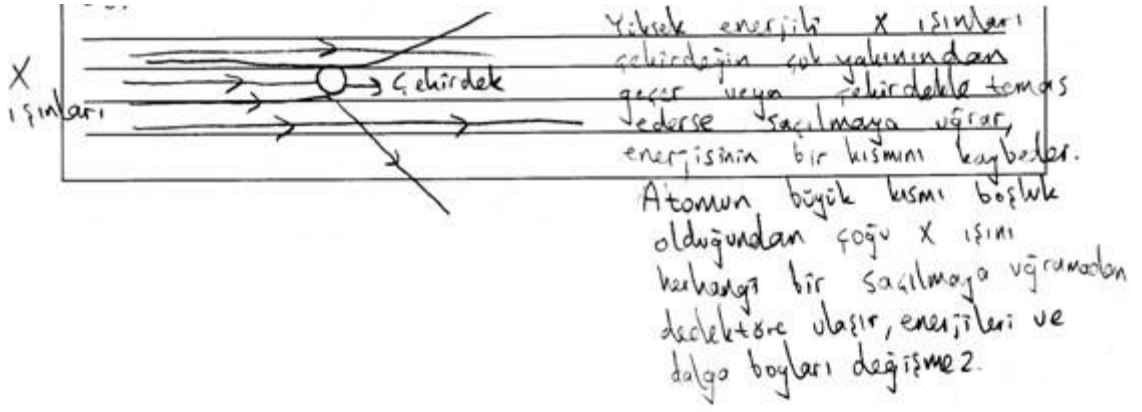 X
ışınları
Çekirdek
Yüksek enerjili X ışınları
çekirdeğin çok yakınından
geçer veya çekirdekle temas
ederse saçılmaya uğrar,
enerjisinin bir kısmını kaybeder.
Atomun büyük kısmı boşluk
olduğundan çoğu X ışını
herhangi bir saçılmaya uğramadan
dedektöre ulaşır, enerjileri ve
dalga boyları değişmez.